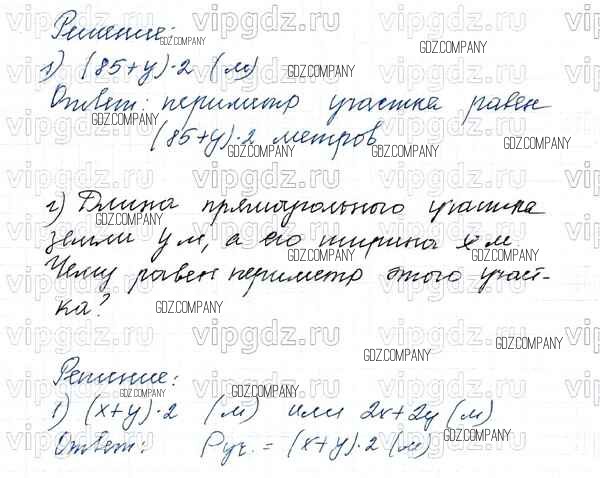 Решение:
1) (85+y)·2 (м)
Ответ: периметр участка равен
(85+y)·2 метров
г) Длина прямоугольного участка
земли y м, а его ширина x м.
Чему равен периметр этого участ-
ка?
Решение:
1) (x+y)·2 (м) или 2x+2y (м)
Ответ: Pуч. = (x+y)·2 (м)
vipgdz.ru
GDZ.COMPANY